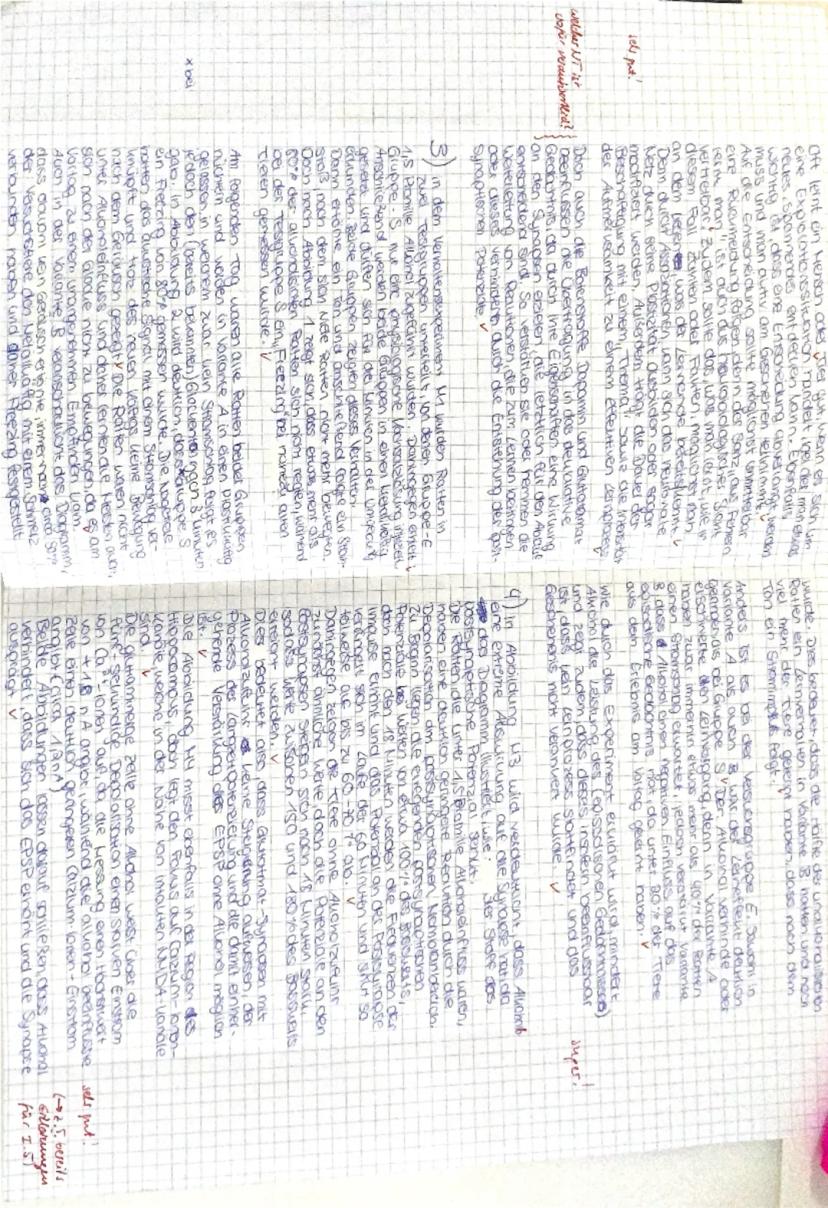 oft lernt ein Mensch oder Tier gut, wenn es sich um
eine Explorationssituation handelt, in der man etwas
neues, spannendes entdecken kann. Ebenfalls
wichtig ist, dass eine Entscheidung abverlangt werden
muss und man aktiv am Geschehen teilnimmt.
Auf die Entscheidung sollte möglichst unmittelbar
eine Rückmeldung folgen, denn der Satz „aus Fehlern
lernt man“ ist auch aus neurobiologischer Sicht
vertretbar. Zudem sollte das, was man lernt, wie in
diesem Fall Zahlen oder Fakten, möglichst nah
an dem liegen, was der Lernende bereits kennt.
Denn durch Assoziationen kann sich das neuronale
Netz durch seine Plastizität ausbilden oder sogar
modifiziert werden. Außerdem trägt die Dauer der
Beschäftigung mit einem „Thema“ sowie die Intensität
der Aufmerksamkeit zu einem effektiven Lernprozess
sehr gut!
Doch auch die Botenstoffe Dopamin und Glutamat
beeinflussen die Übertragung in das deklarative
Gedächtnis, da durch ihre Eigenschaften eine Wirkung
an den Synapsen erzielen, die letztlich für den Ablauf
entscheidend sind. So verstärken sie oder hemmen die
Weiterleitung von Reaktionen, die zum Lernen beitragen
oder dieses vermindern durch die Entstehung der post-
synaptischen Potenziale.
welcher NT ist
dafür verantwortlich?
3) In dem Verhaltensexperiment M1 wurden Ratten in
zwei Testgruppen unterteilt, von denen Gruppe-E
1,5 Promille Alkohol zugeführt wurden. Dahingegen erhielt
Gruppe-S nur eine physiologische Kochsalzlösung injiziert.
Anschließend werden beide Gruppen in einen Metallkäfig
gesetzt und dürfen sich für drei Minuten in der Umgebung
erkunden. Beide Gruppen zeigten dieses Verhalten.
Dann ertönte ein Ton und anschließend folgte ein Strom-
stoß, nach dem sich viele Ratten nicht mehr bewegten.
Denn nach Abbildung 1 zeigt sich, dass etwas mehr als
60% der alkoholisierten Ratten sich nicht regten, während
bei der Testgruppe S ein „Freezing“ bei nahezu allen
Tieren gemessen wurde.
Am folgenden Tag waren alle Ratten beider Gruppen
nüchtern und wurden in Variante A in einen Plastikkäfig
gelassen, in welchem zwar kein Stromschlag folgt, es
jedoch den (bereits bekannten) Glockenton nach 3 Minuten
gab. In Abbildung 2 wird deutlich, dass x Gruppe S
x bei
ein Freezing von 80% gemessen wurde. Die Nagetiere
hatten das akustische Signal mit einem Stromschlag ver-
knüpft und trotz des neuen Käfigs keine Bewegung
nach dem Geräusch gezeigt. Die Ratten waren nicht
unter Alkoholeinfluss und daher lernten die meisten auch,
sich nach der Glocke nicht zu bewegen, da es am
Vortag zu einem unangenehmen Empfinden kam.
Auch in der Variante B veranschaulicht das Diagramm,
dass obwohl kein Geräusch ertönte, immer noch circa 50%
der Versuchstiere den Metallkäfig mit einem Schmerz
verbunden haben und daher Freezing festgestellt
wurde. Dies bedeutet also, dass die Hälfte der unalkoholisierten
Ratten ein Lernverhalten in Variante B hatten und noch
viel mehr der Tiere gelernt haben, dass nach dem
Ton ein Stromimpuls folgt.
Anders ist es bei der Versuchsgruppe E. Sowohl in
Variante A als auch B war der Lerneffekt deutlich
geringer als bei Gruppe S. Der Alkohol verhinderte oder
erschwerte den Lernvorgang, denn in Variante A
haben zwar immerhin etwas mehr als 40% der Ratten
einen Stromschlag erwartet, jedoch verstärkt Variante
B, dass Alkohol einen negativen Einfluss auf das
episodische Gedächtnis hat, da unter 30% der Tiere
aus dem Erlebnis am Vortag gelernt haben.
Wie durch das Experiment erklärt wird, mindert
Alkohol die Leistung des (episodischen Gedächtnisses)
und zeigt zudem, dass dieses insofern beeinflussbar
ist, dass kein Lernprozess stattfindet und das
Geschehnis nicht verankert wurde.
super!
4) In Abbildung M3 wird verdeutlicht, dass Alkohol
eine extreme Auswirkung auf die Synapse hat, da
das Diagramm illustriert, wie der Stoff das
postsynaptische Potenzial senkt.
Die Ratten, die unter 1,5 Promille Alkoholeinfluss waren,
hatten eine deutlich geringere Reaktion durch die
Depolarisation am postsynaptischen Membranbereich.
Zu Beginn liegen die erregenden postsynaptischen
Potenziale bei Werten von etwa 100% des Basiswerts,
doch nach den 18 Minuten werden die Frequenzen der
Impulse erhöht und das Potenzial an der Postsynapse
verringert sich im Laufe der 60 Minuten und sinkt so
teilweise auf bis zu 60-70% ab.
Dahingegen zeigen die Tiere ohne Alkoholzufuhr
zunächst ähnliche Werte, doch die Potenziale an den
Postsynapsen steigen sich nach 18 Minuten stark,
sodass Werte zwischen 150 und 180% des Basiswerts
erzielt werden.
Dies bedeutet also, dass Glutamat-Synapsen mit
Alkoholzufuhr keine Steigerung aufweisen, der
Prozess der Langzeitpotenzierung und die damit einher-
gehende Verstärkung des EPSP ohne Alkohol möglich
ist.
Die Abbildung M4 misst ebenfalls in der Region des
Hippocampus, doch legt den Fokus auf Calcium-Ionen-
kanäle, welche in der Nähe von intakten NMDA-Kanäle
sind.
Die glutaminerge Zelle ohne Alkohol weist über die
fünf-sekündige Depolarisation einen starken Einstrom
von Ca²⁺-Ionen auf, da die Messung einen Höchstwert
von +18 nA angibt, während die alkoholbeeinflusste
Zelle einen deutlich geringeren Calcium-Ionen-Einstrom
angibt (circa 12nA)
Beide Abbildungen lassen darauf schließen, dass Alkohol
verhindert, dass sich das EPSP erhöht und die Synapse
ausprägt
sehr gut!
(→ z.T. bereits
Erklärungen
für I.5)